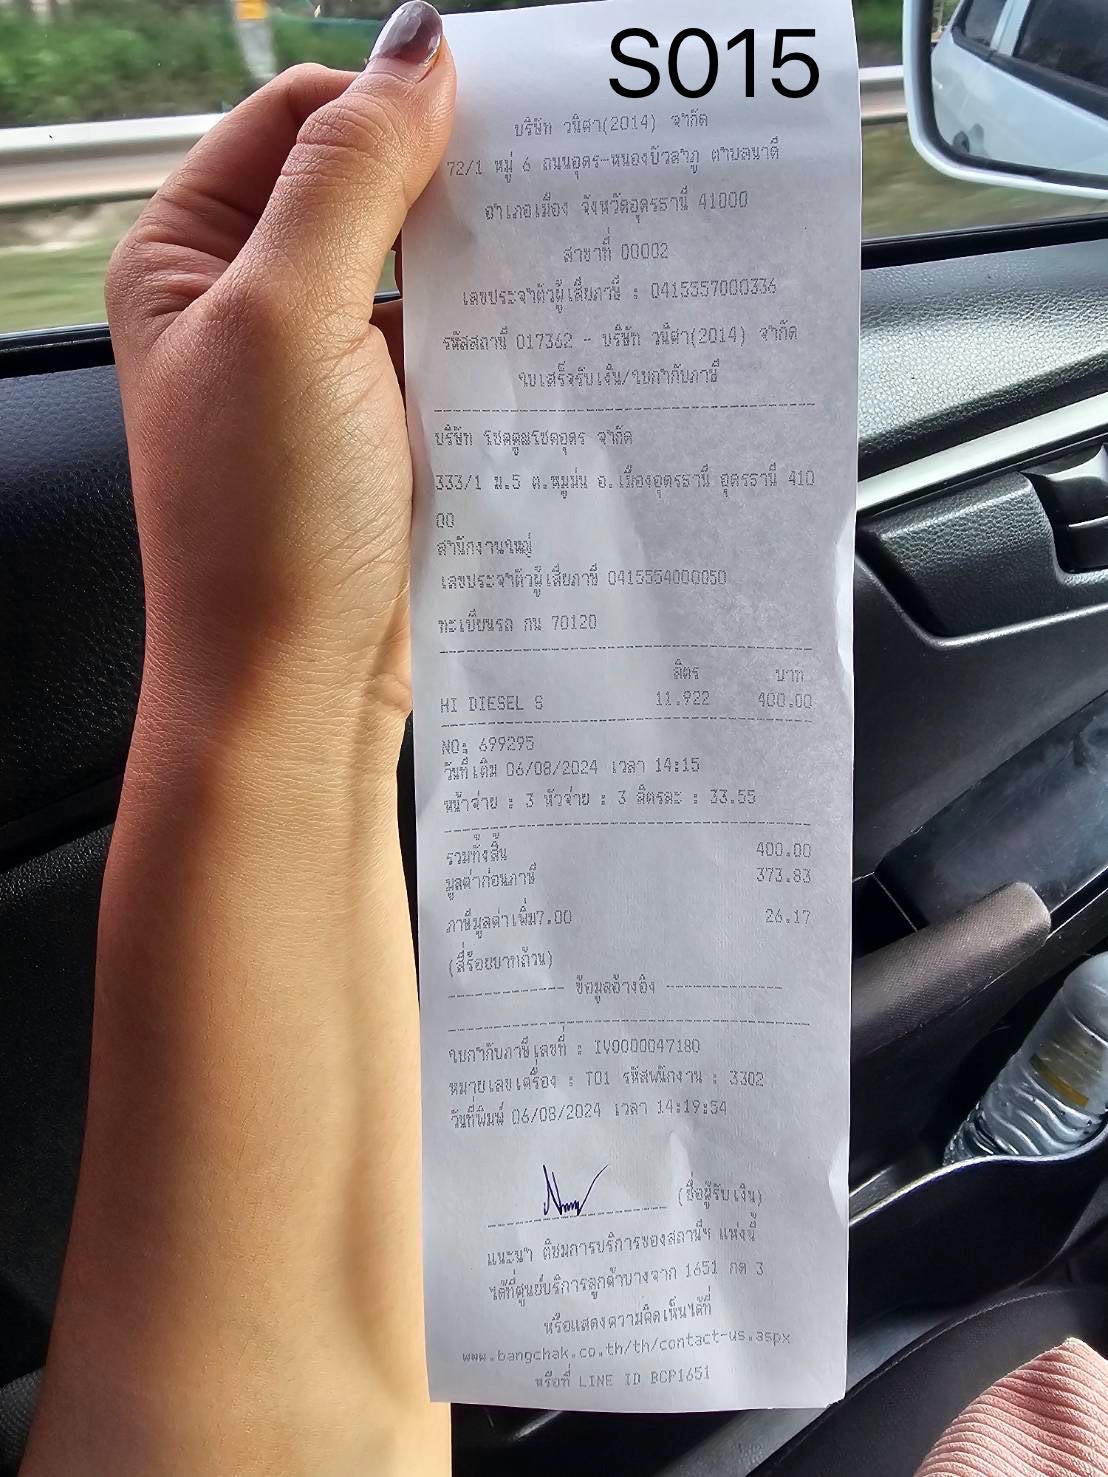 S015
บริษัท วนิศา(2014) จำกัด
72/1 หมู่ 6 ถนนอุดร-หนองบัวลำภู ตำบลนาดี
อำเภอเมือง จังหวัดอุดรธานี 41000
สาขาที่ 00002
เลขประจำตัวผู้เสียภาษี : 0415557000336
รหัสสถานี 017362 - บริษัท วนิศา(2014) จำกัด
ใบเสร็จรับเงิน/ใบกำกับภาษี
บริษัท โชคคูณโชคอุดร จำกัด
333/1 ม.5 ต.หมูม่น อ.เมืองอุดรธานี อุดรธานี 410
00
สำนักงานใหญ่
เลขประจำตัวผู้เสียภาษี 0415554000050
ทะเบียนรถ กน 70120
ลิตร บาท
HI DIESEL S 11.922 400.00
NO: 699295
วันที่เติม 06/08/2024 เวลา 14:15
หน้าจ่าย : 3 หัวจ่าย : 3 ลิตรละ : 33.55
รวมทั้งสิ้น 400.00
มูลค่าก่อนภาษี 373.83
ภาษีมูลค่าเพิ่ม7.00 26.17
(สี่ร้อยบาทถ้วน)
---------- ข้อมูลอ้างอิง ----------
ใบกำกับภาษีเลขที่ : IV0000047180
หมายเลขเครื่อง : T01 รหัสพนักงาน : 3302
วันที่พิมพ์ 06/08/2024 เวลา 14:19:54
(ชื่อผู้รับเงิน)
แนะนำ ติชมการบริการของสถานีฯ แห่งนี้
ได้ที่ศูนย์บริการลูกค้าบางจาก 1651 กด 3
หรือแสดงความคิดเห็นได้ที่
www.bangchak.co.th/th/contact-us.aspx
หรือที่ LINE ID BCP1651